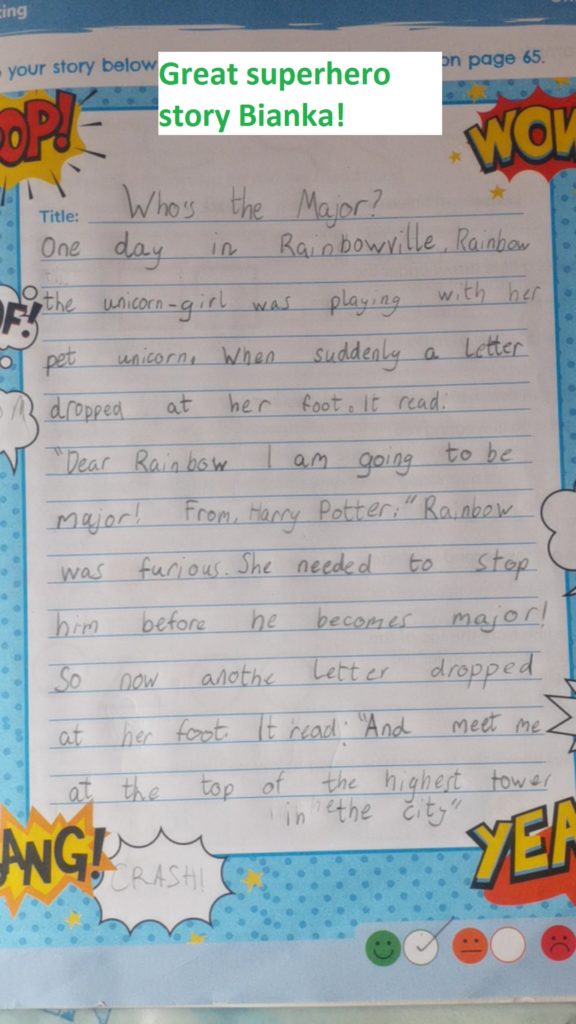 ting
your story below
on page 65.
Great superhero
story Bianka!
OP!
WOW
Title: Who's the Major?
One day in Rainbowville, Rainbow
the unicorn-girl was playing with her
F!
pet unicorn. When suddenly a letter
dropped at her foot. It read:
"Dear Rainbow I am going to be
major! From, Harry Potter." Rainbow
was furious. She needed to stop
him before he becomes major!
So now anothe letter dropped
at her foot. It read: "And meet me
at the top of the highest tower
in the city"
ANG!
CRASH!
YEA